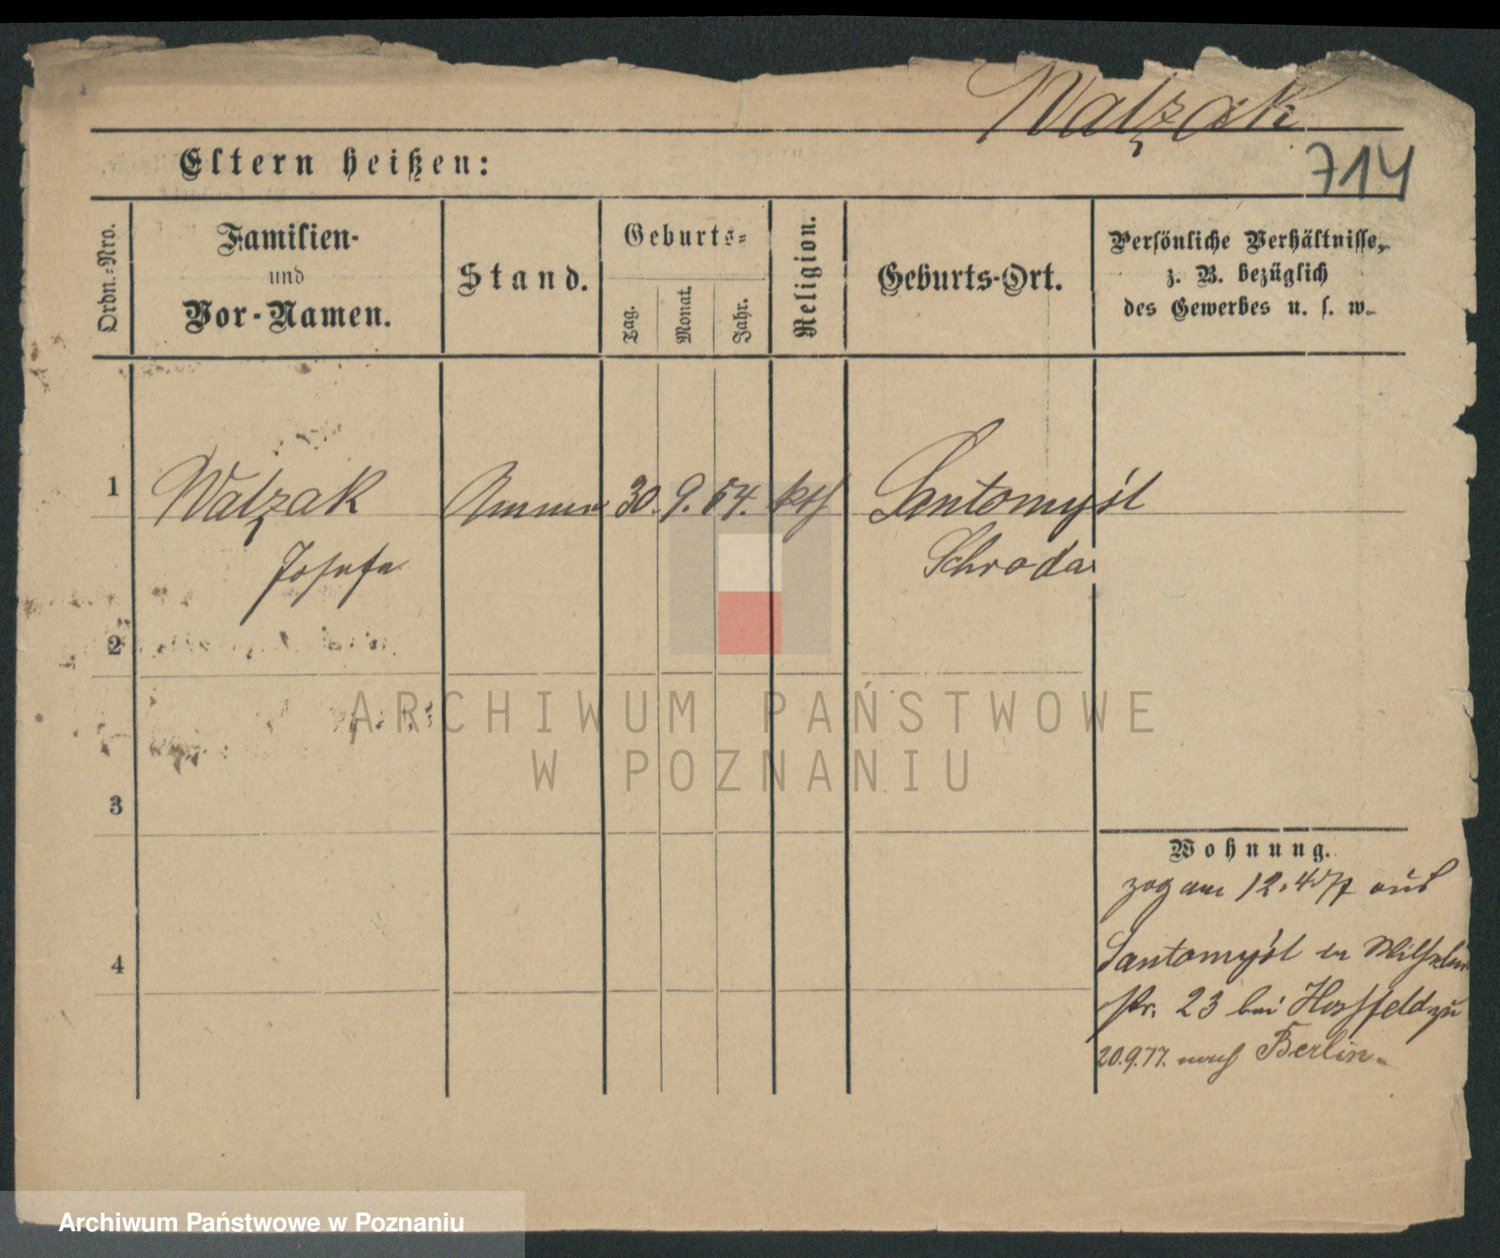 Walzak
714
Eltern heißen:
Ordn.-Nro.
Familien-
und
Vor-Namen.
Stand.
Geburts-
Tag.
Monat.
Jahr.
Religion.
Geburts-Ort.
Persönliche Verhältnisse,
z. B. bezüglich
des Gewerbes u. s. w.
1
Walzak
Amme
30. 9. 54.
kth
Santomyśl
Josefa
Schroda
2
3
4
Wohnung.
zog am 12. 4. 77 aus
Santomyśl in Wilhelm
str. 23 bei Hossfeld zu
20.9.77. nach Berlin.
ARCHIWUM PAŃSTWOWE
W POZNANIU
Archiwum Państwowe w Poznaniu